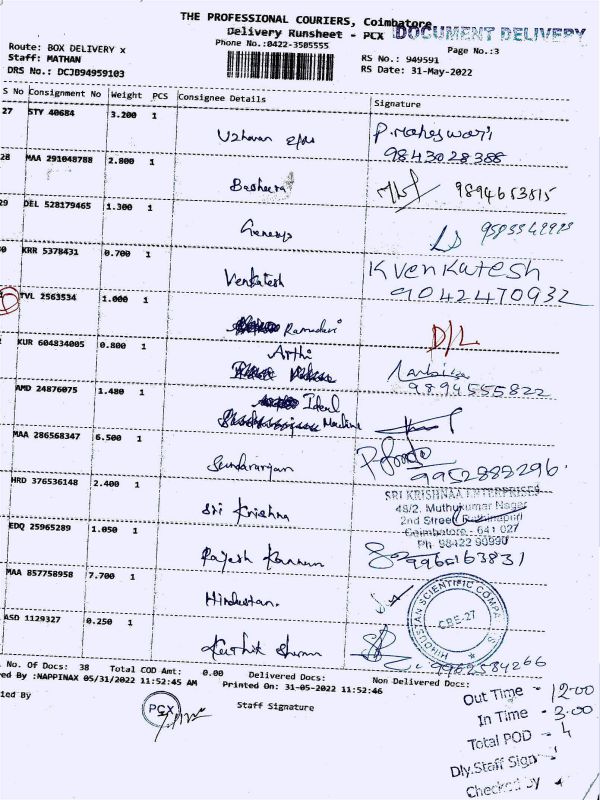 THE PROFESSIONAL COURIERS, Coimbatore
Delivery Runsheet - PCX DOCUMENT DELIVERY
Phone No.:0422-3505555 Page No.:3
Route: BOX DELIVERY x
Staff: MATHAN RS No.: 949591
DRS No.: DCJB94959103 RS Date: 31-May-2022
S No Consignment No Weight PCS Consignee Details Signature
27 STY 40684 3.200 1 P.Maheswari
9843028388
28 MAA 291048788 2.800 1 Basheera 9894653815
29 DEL 528179465 1.300 1 Ganesp
KRR 5378431 0.700 1 Venkatesh K Venkatesh
9042470932
TVL 2563534 1.000 1 D/L
KUR 604834005 0.800 1 Arthi
9894555822
AMD 24876075 1.480 1 Ideal
Machine
MAA 286568347 6.500 1 Sundararajan 9952882296
HRD 376536148 2.400 1 Sri Krishna SRI KRISHNAA ENTERPRISES
48/2, Muthukumar Nagar
2nd Street, Rathinapuri
Coimbatore - 641 027
Ph 98422 90990
EDQ 25965289 1.050 1 Rajesh Kannan 9966163831
MAA 857758958 7.700 1 Hindustan. HINDUSTAN SCIENTIFIC COMPANY
CBE-27
ASD 1129327 0.250 1 9962584266
No. Of Docs: 38 Total COD Amt: 0.00 Delivered Docs: Non Delivered Docs:
ed By :NAPPINAX 05/31/2022 11:52:45 AM Printed On: 31-05-2022 11:52:46
ied By PCX Staff Signature
Out Time - 12.00
In Time - 3.00
Total POD - 4
Dly.Staff Sign -
Checked by